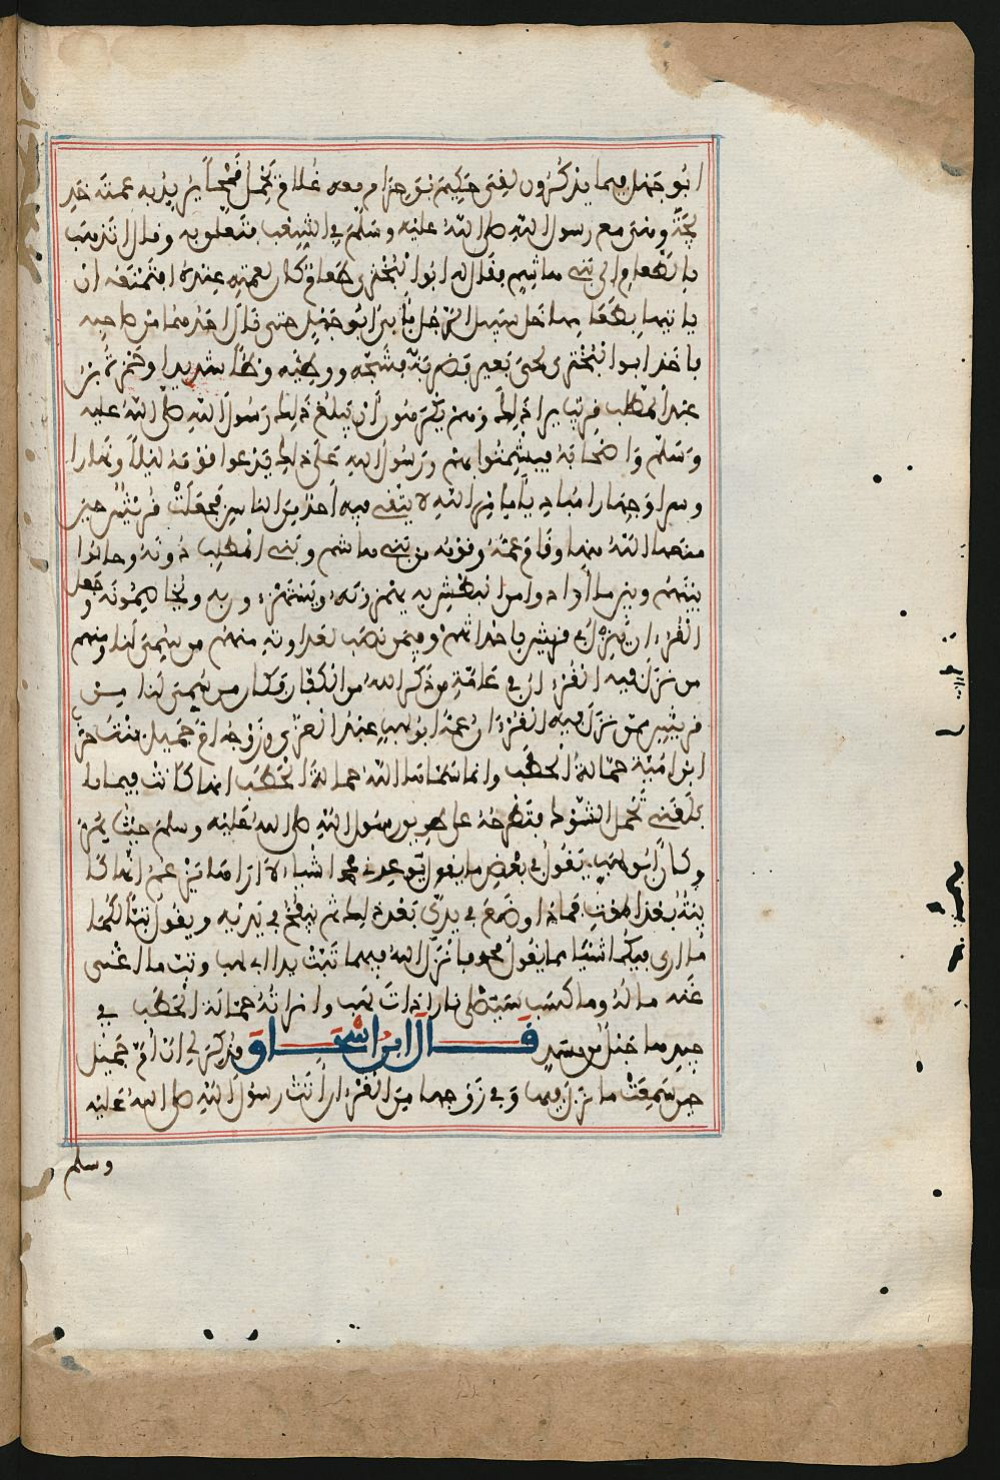 ابو جهل فيما يذكرون لقي حكيم بن حزام معه غلام يحمل قمحا يريد به عمته خد
يجة وهي مع رسول الله صلى الله عليه وسلم في الشعب فتعلق به وقال اتذهب
بالطعام الى بني هاشم فقال له ابو البختري طعام كان لعمته عنده افتمنعه ان
ياتيها بطعامها خل سبيل الرجل فابى ابو جهل حتى نال احدهما من صاحبه
فاخذ ابو البختري لحى بعير فضربه به فشجه ووطئه وطئا شديدا وحمزة بن
عبد المطلب قريب يرى ذلك وهم يكرهون ان يبلغ ذلك رسول الله صلى الله عليه
وسلم واصحابه فيشمتوا بهم ورسول الله على ذلك يدعوا قومه ليلا ونهارا
وسرا وجهارا مباديا بامر الله لا يتقي فيه احدا من الناس فجعلت قريش حين
منعه الله منها وقام عمه وقومه من بني هاشم وبني المطلب دونه وحالوا
بينهم وبين ما ارادوا من البطش به يهمزونه ويستهزءون به ويخاصمونه وجعل
القرءان ينزل في قريش باحداثهم وفيمن نصب لعداوته منهم من سمى لنا ومنهم
من نزل فيه القرءان في عامة من ذكر الله من الكفار فكان ممن سمى لنا من
قريش ممن نزل فيه القرءان عمه ابو لهب عبد العزى وزوجه ام جميل بنت حرب
ابن امية حمالة الحطب وانما سماها الله حمالة الحطب انها كانت فيما
بلغني تحمل الشوك فتطرحه على طريق رسول الله صلى الله عليه وسلم حيث يمر
وكان ابو لهب يقول في بعض ما يقول يوعدني محمد اشياء لا اراها يزعم انها كا
ئنة بعد الموت فماذا وضع في يدي بعد ذلك ثم ينفخ في يديه ويقول تبا لكما
ما ارى فيكما شيئا مما يقول محمد فانزل الله فيهما تبت يدا ابي لهب وتب ما اغنى
عنه ماله وما كسب سيصلى نارا ذات لهب وامراته حمالة الحطب في
جيدها حبل من مسد قال ابن اسحاق فذكر لي ان ام جميل
حين سمعت ما نزل فيها وفي زوجها من القرءان اتت رسول الله صلى الله عليه
وسلم